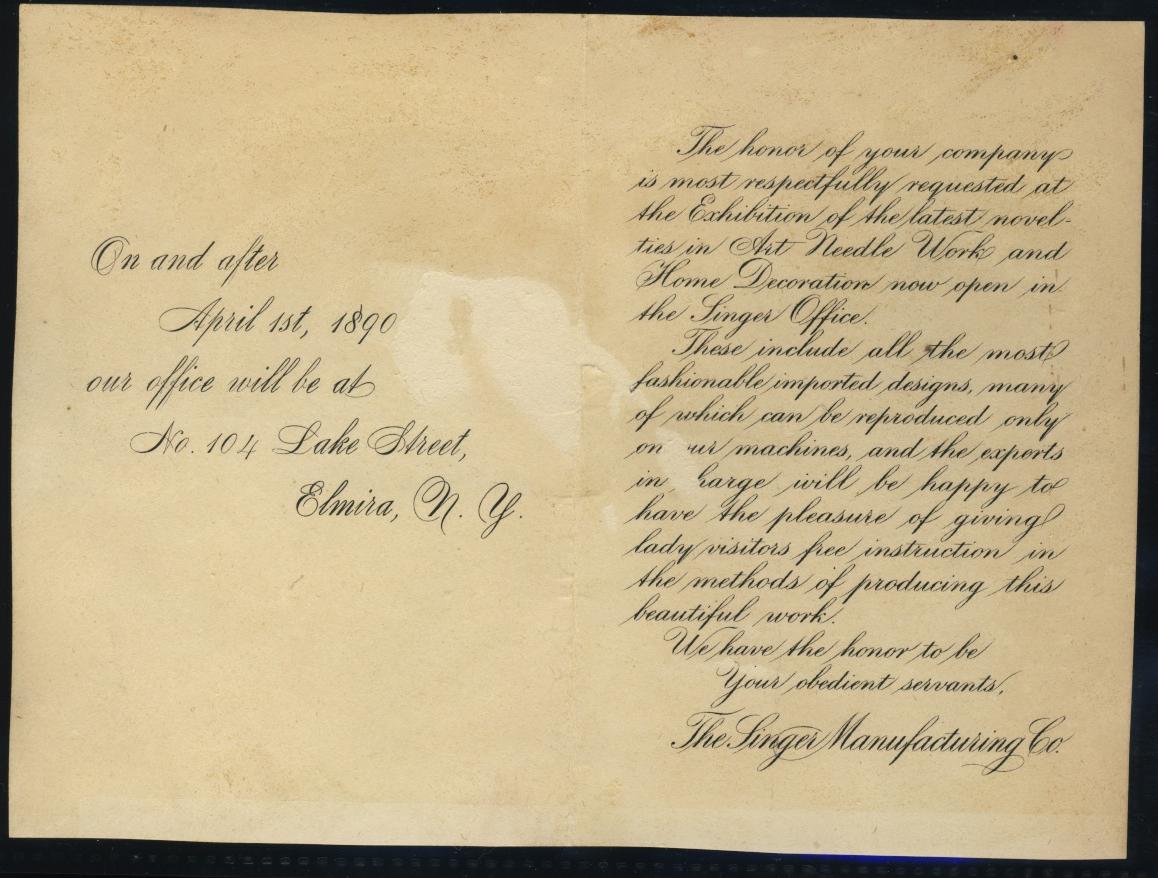 On and after
April 1st, 1890
our office will be at
No. 104 Lake Street,
Elmira, N. Y.
The honor of your company
is most respectfully requested at
the Exhibition of the latest novel-
ties in Art Needle Work and
Home Decoration now open in
the Singer Office.
These include all the most
fashionable imported designs, many
of which can be reproduced only
on ur machines, and the experts
in harge will be happy to
have the pleasure of giving
lady visitors free instruction in
the methods of producing this
beautiful work.
We have the honor to be
Your obedient servants,
The Singer Manufacturing Co.